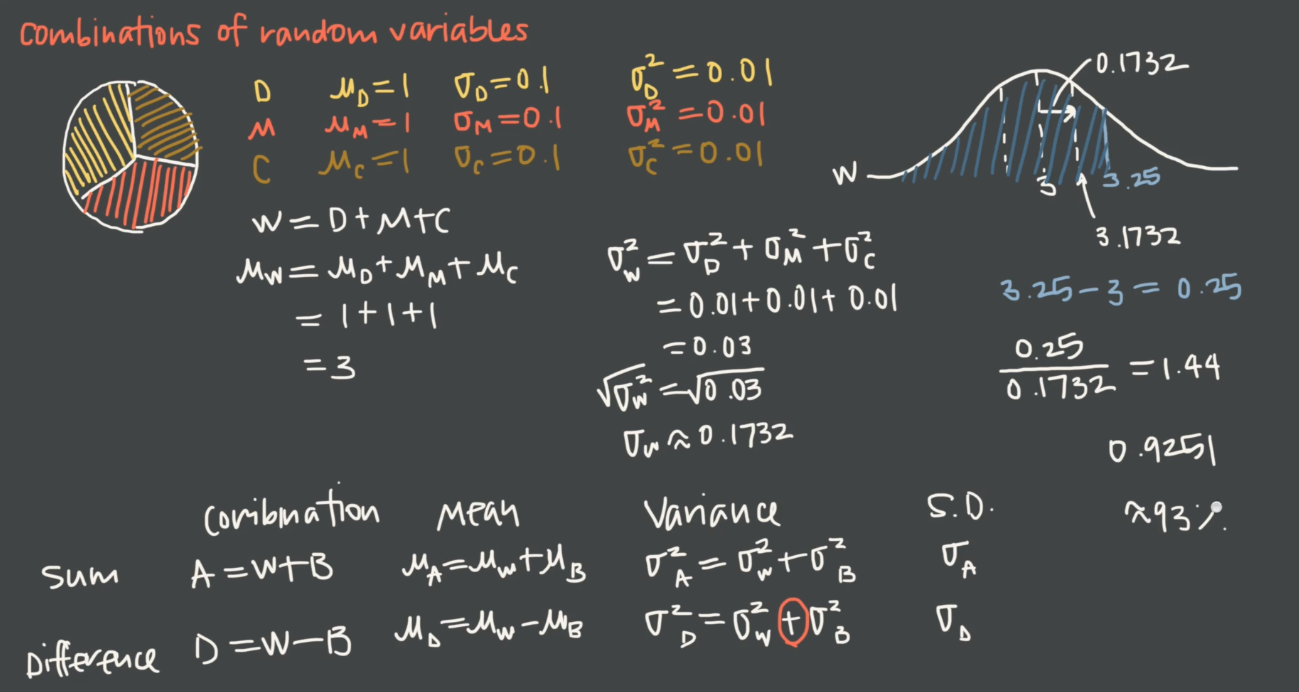 Combinations of random variables
D μ_D=1 σ_D=0.1 σ²_D=0.01
M μ_M=1 σ_M=0.1 σ²_M=0.01
C μ_C=1 σ_C=0.1 σ²_C=0.01
W=D+M+C
μ_W=μ_D+μ_M+μ_C
=1+1+1
=3
σ²_W=σ²_D+σ²_M+σ²_C
=0.01+0.01+0.01
=0.03
√σ²_W=√0.03
σ_W≈0.1732
0.1732
W
3 3.25
3.1732
3.25-3=0.25
0.25/0.1732=1.44
0.9251
≈93%
Combination Mean Variance S.D.
Sum A=W+B μ_A=μ_W+μ_B σ²_A=σ²_W+σ²_B σ_A
Difference D=W-B μ_D=μ_W-μ_B σ²_D=σ²_W+σ²_B σ_D